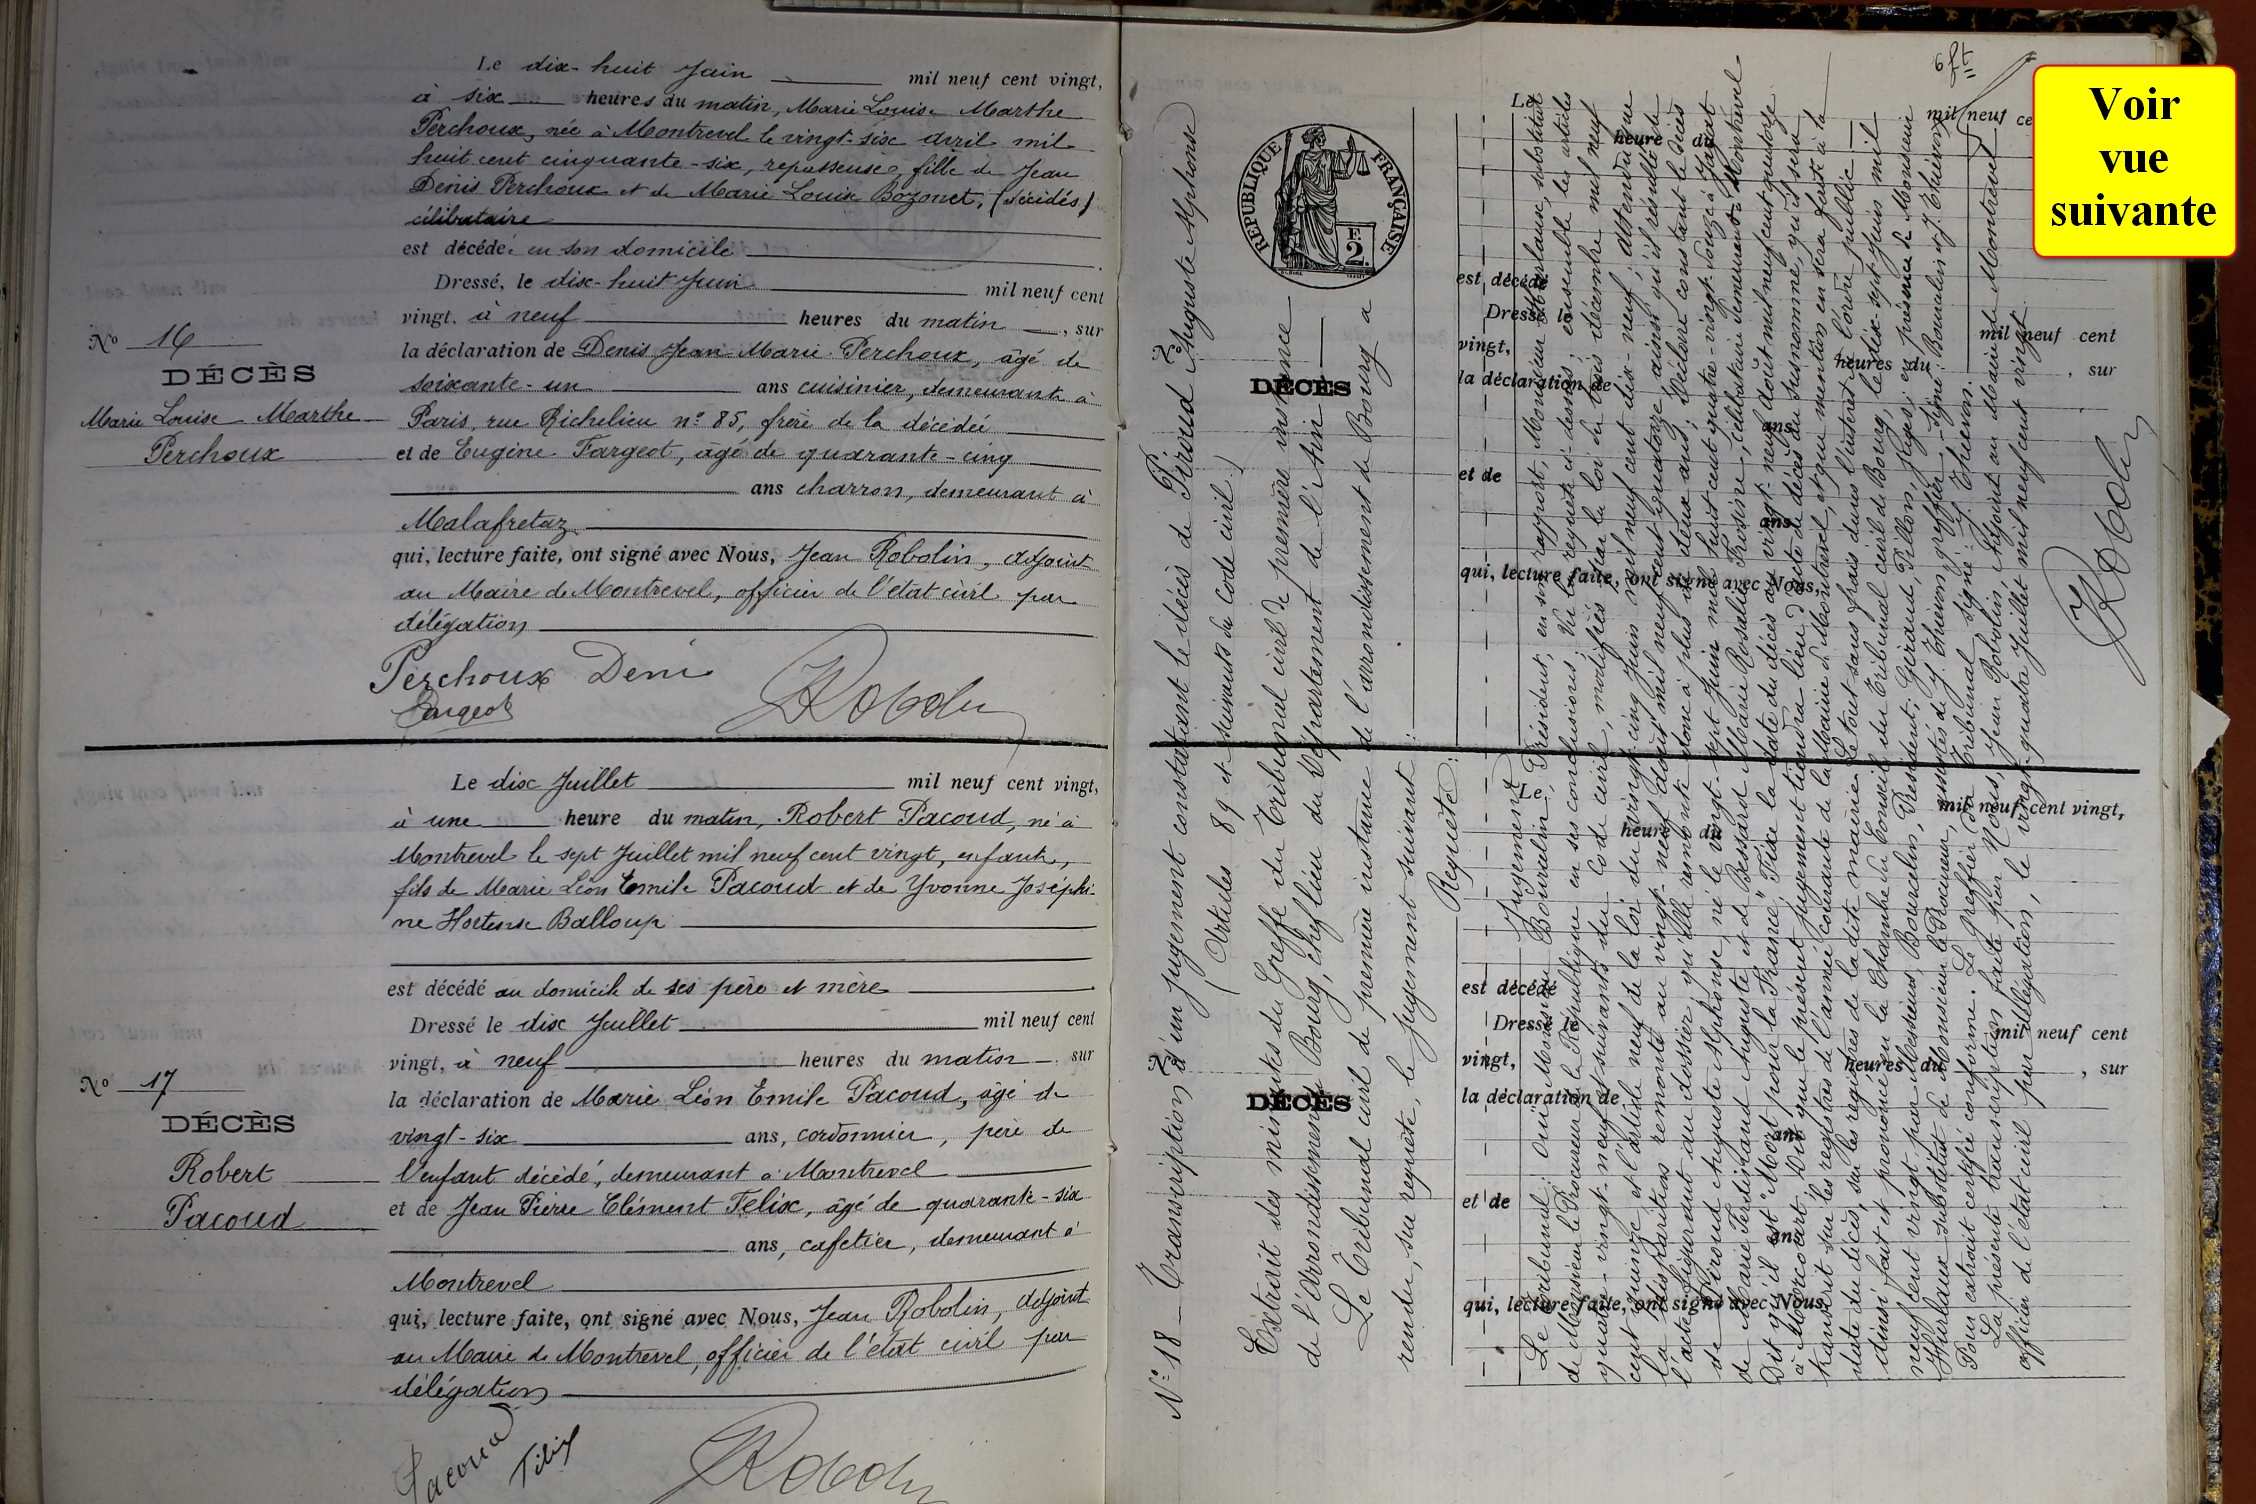 Le dix-huit Juin mil neuf cent vingt,
à six heures du matin, Marie Louise Marthe
Perchoux, née à Montrevel le vingt-six avril mil
huit cent cinquante-six, repasseuse, fille de Jean
Denis Perchoux et de Marie Louise Bozonet, (décédés)
célibataire
est décédée en son domicile
Dressé, le dix-huit Juin mil neuf cent
vingt, à neuf heures du matin, sur
No 16
la déclaration de Denis Jean-Marie Perchoux, âgé de
DÉCÈS
soixante-un ans cuisinier, demeurant à
Marie Louise Marthe
Paris, rue Richelieu no 85, frère de la décédée
Perchoux
et de Eugène Fargeot, âgé de quarante-cinq
ans charron, demeurant à
Malafretaz
qui, lecture faite, ont signé avec Nous, Jean Robolin, adjoint
au Maire de Montrevel, officier de l'état civil par
délégation
Perchoux Deni
Fargeot
JRobolin
Le dix Juillet mil neuf cent vingt,
à une heure du matin, Robert Pacoud, né à
Montrevel le sept Juillet mil neuf cent vingt, enfant,
fils de Marie Léon Emile Pacoud et de Yvonne Joséphi-
ne Hortense Balloup
est décédé au domicile de ses père et mère
Dressé le dix Juillet mil neuf cent
vingt, à neuf heures du matin, sur
No 17
la déclaration de Marie Léon Emile Pacoud, âgé de
DÉCÈS
vingt-six ans, cordonnier, père de
Robert
l'enfant décédé, demeurant à Montrevel
Pacoud
et de Jean Pierre Clément Felix, âgé de quarante-six
ans, cafetier, demeurant à
Montrevel
qui, lecture faite, ont signé avec Nous, Jean Robolin, adjoint
au Maire de Montrevel, officier de l'état civil par
délégation
Pacoud
Félix
JRobolin
Voir
vue
suivante
RÉPUBLIQUE FRANÇAISE
F.
2.
No 18 — Transcription d'un jugement constatant le décès de Piroud Auguste Alphonse
(Articles 89 et suivants du Code civil.)
Extrait des minutes du Greffe du Tribunal civil de première instance
de l'Arrondissement de Bourg, chef-lieu du Département de l'Ain
Le Tribunal civil de première instance de l'arrondissement de Bourg a
rendu, sur requête, le jugement suivant :
Requête :
Jugement
Le Tribunal : Ouï Monsieur Bourralin, Président, en son rapport, Monsieur Hurlaux, substitut
de Monsieur le Procureur de la République en ses conclusions ; Vu la requête ci-dessus, ensemble les articles
quatre-vingt-neuf et suivants du Code civil, modifiés par la loi du trois décembre mil neuf
cent quinze et l'article neuf de la loi du vingt-cinq Juin mil neuf cent dix neuf ; Attendu que
la disparition remonte au vingt-neuf Août mil neuf cent quatorze, ainsi qu'il résulte de
l'acte figurant au dossier, qu'elle remonte donc à plus de deux ans ; Déclare constant le décès
de Piroud Auguste Alphonse, né le vingt-sept Juin mil huit cent quatre-vingt-douze à Jayat
de Marie Ferdinand Auguste et de Bessard Marie Rosalie Frosine, célibataire demeurant à Montrevel
Dit qu'il est "Mort pour la France" Fixe la date du décès au vingt-neuf Août mil neuf cent quatorze
à Dit que le présent jugement tiendra lieu d'acte de décès du susnommé, qu'il sera
transcrit sur les registres de l'année courante de la Mairie de Montrevel, et que mention en sera faite à la
date du décès, sur les registres de la dite mairie Le tout sans frais dans l'intérêt de l'ordre public
Ainsi fait et prononcé en la Chambre du Conseil du Tribunal civil de Bourg, le dix-sept Juin mil
neuf cent vingt par Messieurs, Président, Giraud, Pillon, Juges, en présence de Monsieur
Hurlaux substitut de Monsieur le Procureur, assistés de J. Thiévon, greffier
Pour extrait certifié conforme. Le greffier du Tribunal Signé : J. Thiévon.
La présente transcription faite par Nous, Jean Robolin Adjoint au Maire de Montrevel
officier de l'état civil par délégation, le vingt-quatre Juillet mil neuf cent vingt
JRobolin
Le
mil neuf ce
heure du
est décédé
Dressé le
mil neuf cent
vingt,
heures du
, sur
la déclaration de
DÉCÈS
ans
et de
ans
qui, lecture faite, ont signé avec Nous,
Le
mil neuf cent vingt,
heure du
est décédé
Dressé le
mil neuf cent
No
vingt,
heures du
, sur
DÉCÈS
la déclaration de
ans
et de
ans
qui, lecture faite, ont signé avec Nous